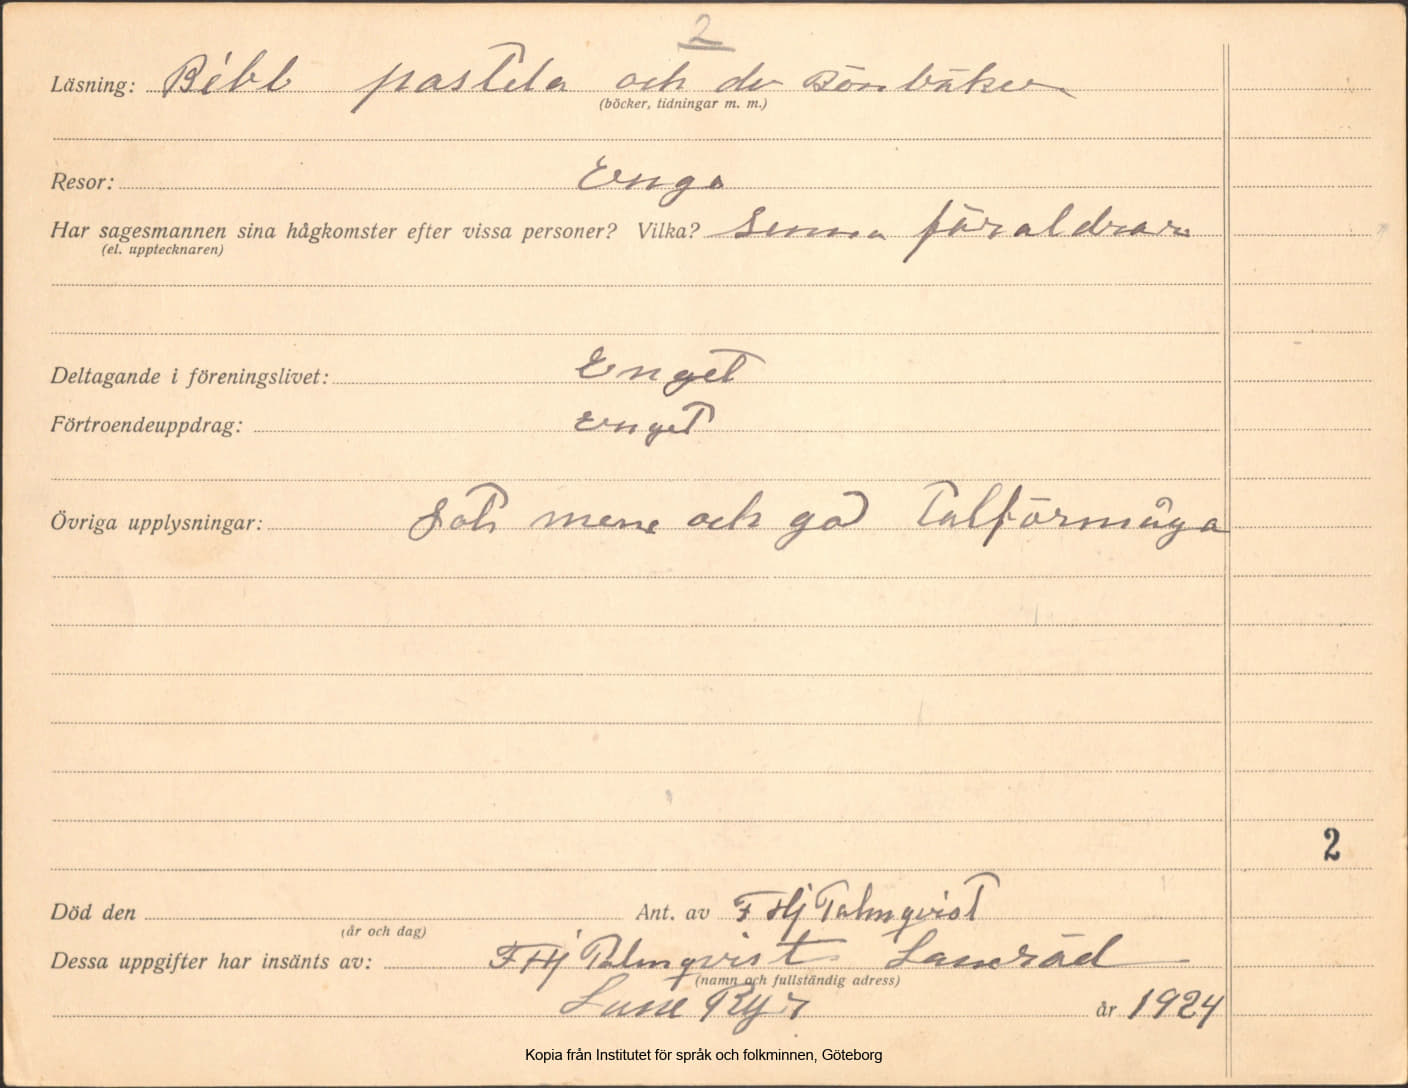 2
Läsning: Bibl pastela och de Bönbäker
(böcker, tidningar m. m.)
Resor: Enga
Har sagesmannen sina hågkomster efter vissa personer? Vilka? Senna föräldrar
(el. upptecknaren)
Deltagande i föreningslivet: Enget
Förtroendeuppdrag: Enget
Övriga upplysningar: mene och god Talförmåga
2
Död den Ant. av F Hj Palmqvist
(år och dag)
Dessa uppgifter har insänts av: F Hj Palmqvist
(namn och fullständig adress)
Lane Ryr år 1924
Kopia från Institutet för språk och folkminnen, Göteborg